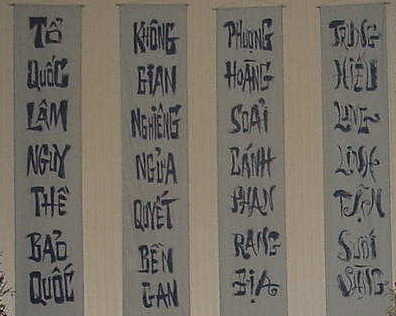 TỔ QUỐC LÂM NGUY THỀ BẢO QUỐC
KHÔNG GIAN NGHIÊNG NGỬA QUYẾT BỀN GAN
PHƯỢNG HOÀNG SOẢI CÁNH PHAN RANG ĐỊA
TRUNG HIẾU LUNG LINH TẬN SUỐI VÀNG